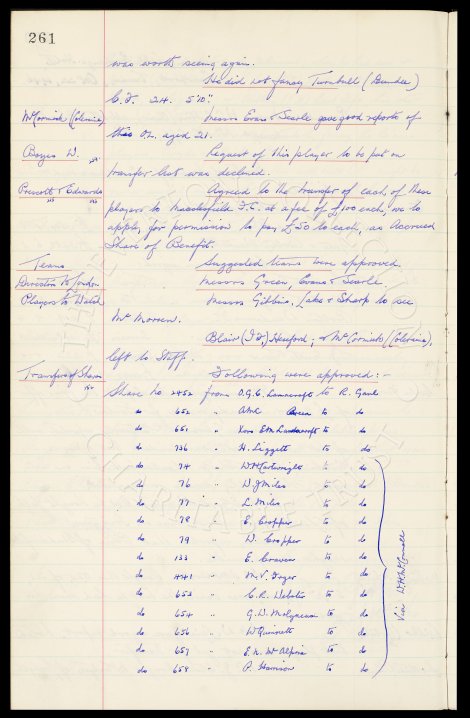 261
was worth seeing again.
He did not fancy Turnbull (Dundee)
C.F. 24. 5'10".
McCormick (Coleraine) Messrs Evans & Searle gave good reports of
this O.L. aged 21.
Boyes W. Request of this player to be put on
transfer list was declined.
Prescott & Edwards Agreed to the transfer of each of these
players to Macclesfield F.C. at a fee of £100 each, we to
apply for permission to pay £50 to each, as Accrued
Share of Benefit.
Teams Suggested teams were approved.
Directors to London Messrs Green, Evans & Searle.
Players to Watch Messrs Gibbins, Lake & Sharp to see
Mc Morran.
Blair (J.) Hereford; & McCormick (Coleraine),
left to Staff.
Transfers of Shares Following were approved:-
Share No 2452 from to R. Gault
do 652 " to do
do 651 " to do
do 736 " H. Liggett to do
do 74 " W. H. Cartwright to do
do 76 " W. J. Miles to do
do 77 " L. Miles to do
do 78 " E. Cropper to do
do 79 " W. Cropper to do
do 133 " E. Craven to do
do 441 " M. V. to do
do 653 " C. R. Webster to do
do 654 " G. W. Molyneux to do
do 656 " W. to do
do 657 " E. N. McAlpin to do
do 658 " P. Harrison to do
Via W. H. McConnell
THE CHARITABLE TRUST